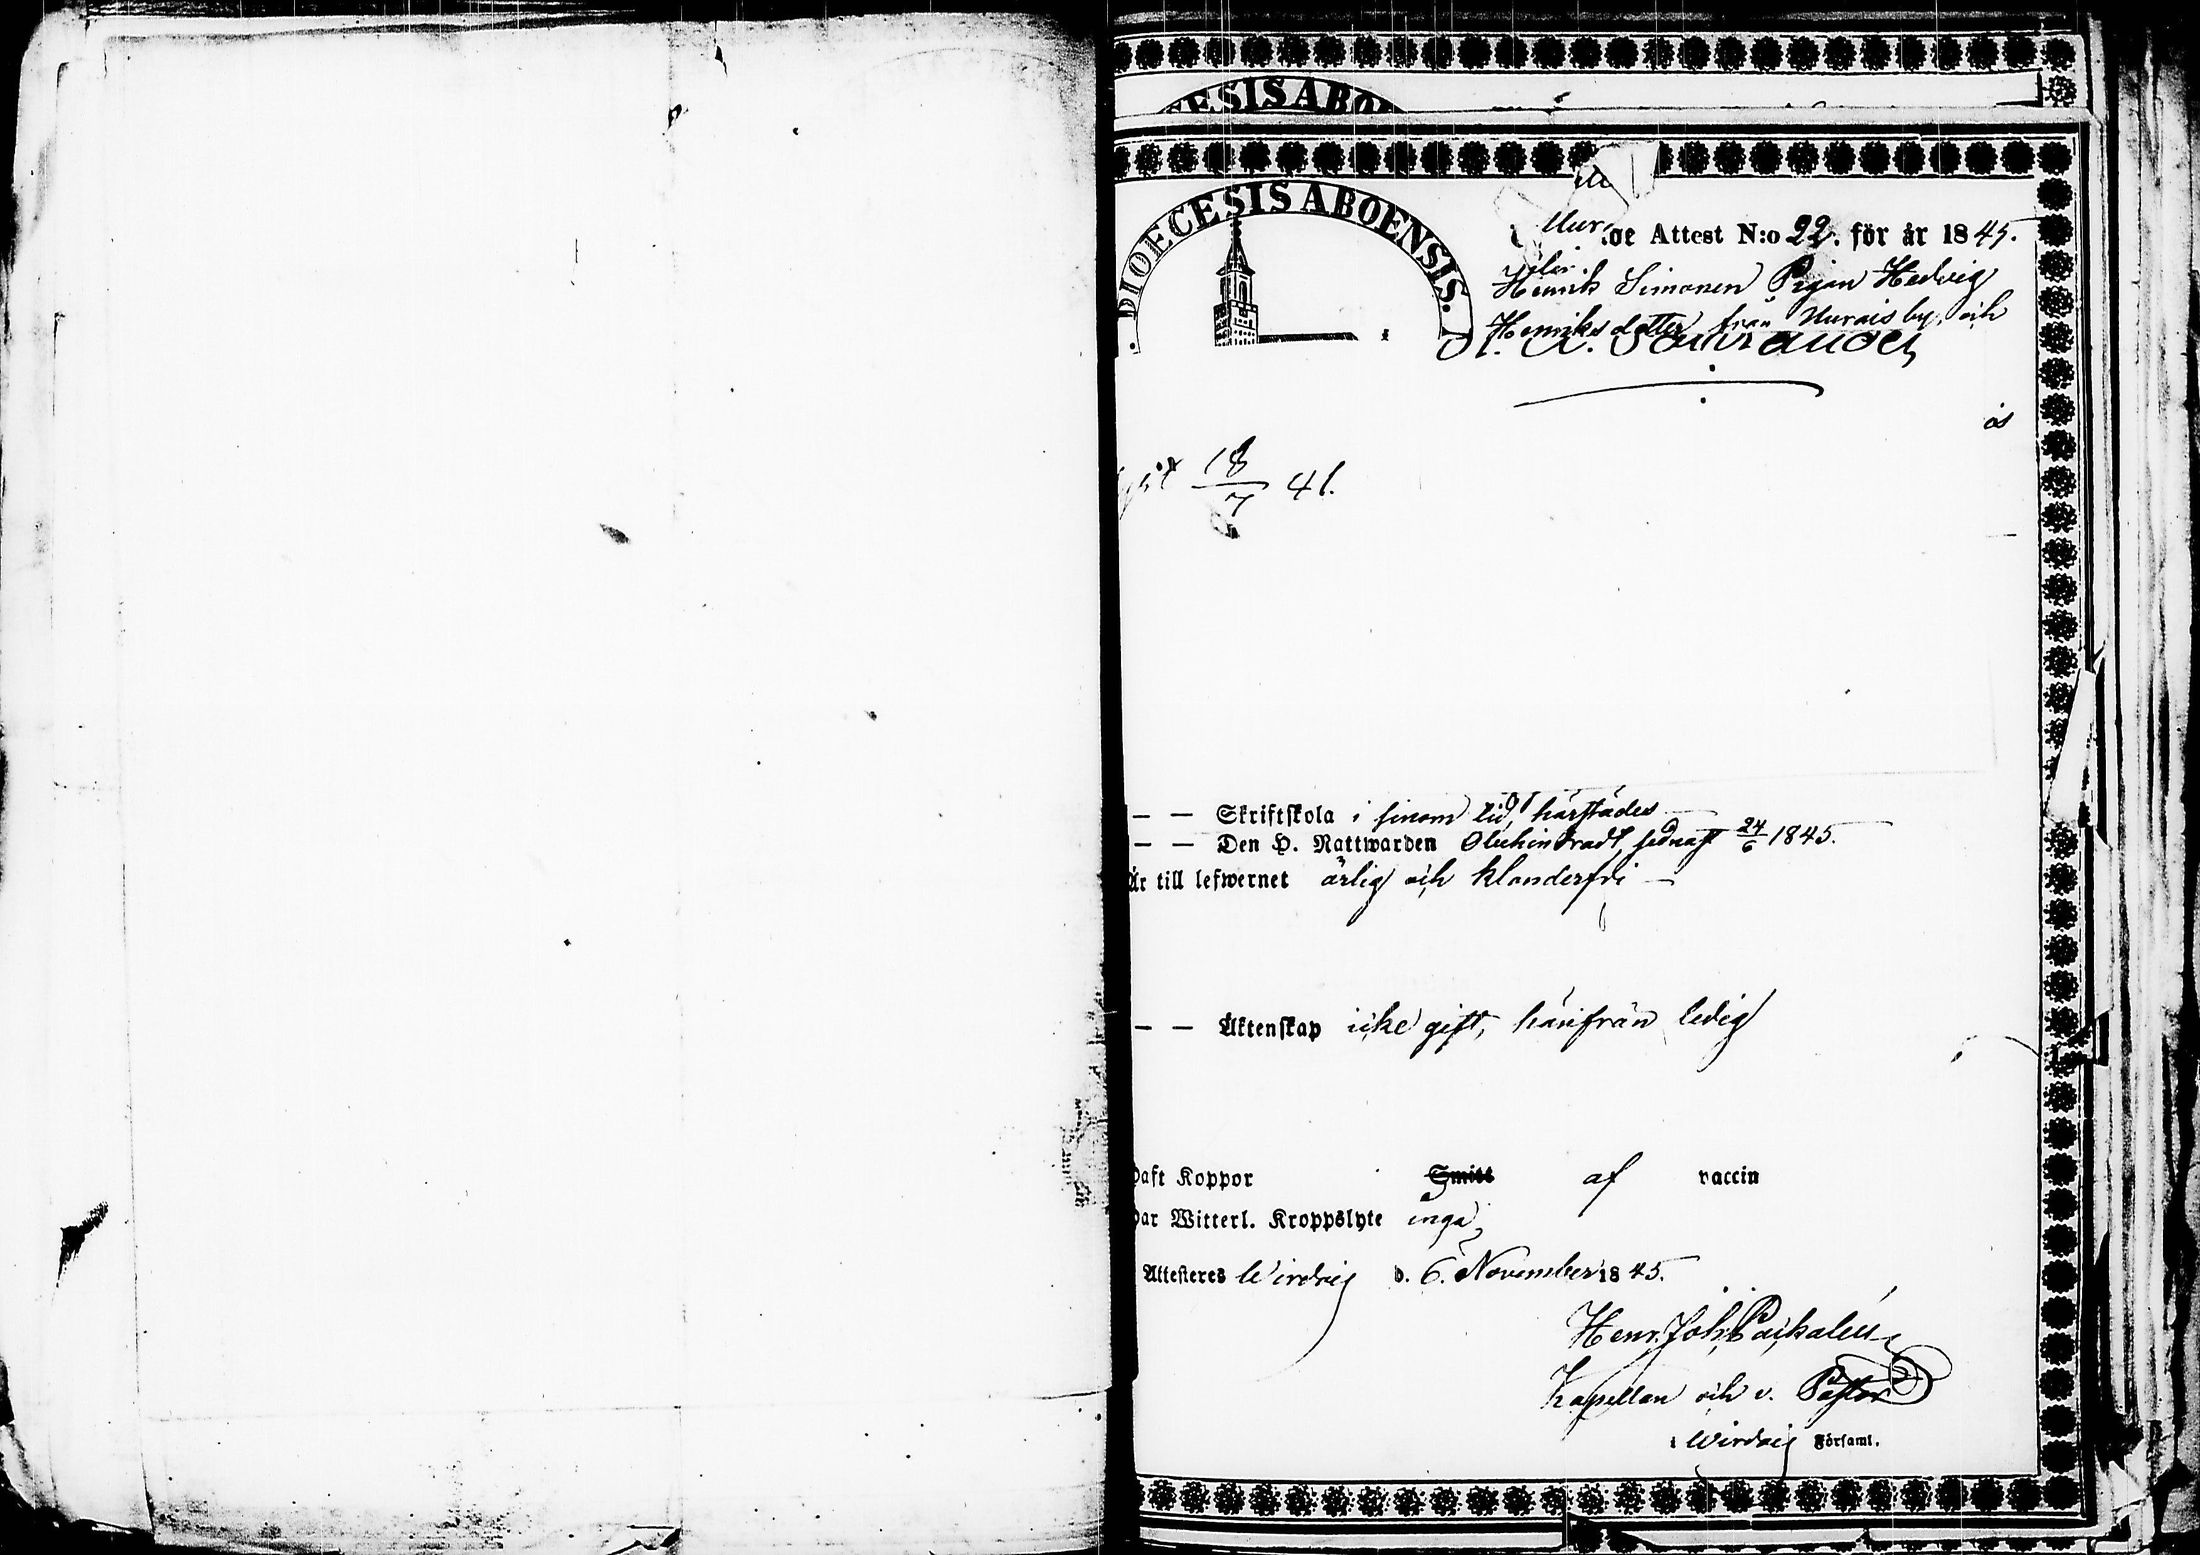 ESIS ABO
DIOECESIS ABOENSIS.
Attest N:o 22. för år 1845.
Henrik Simonen Pigan Hedvig
Henriksdotter från Nurais by, och
ås
18/7 41.
— — Skriftskola i sinom tid, härstädes —
— — Den H. Nattwarden Oluhindradt, sednast 24/6 1845.
Är till lefwernet ärlig och klanderfri —
— — Äktenskap icke gift, härifrån ledig
haft Koppor Smitt af vaccin
har Witterl. Kroppslyte inga
Attesteres Wirdois d. 6. November 1845.
Henr. Joh. Paskalén
Kapellan och v. Pastor
i Wirdois Församl.